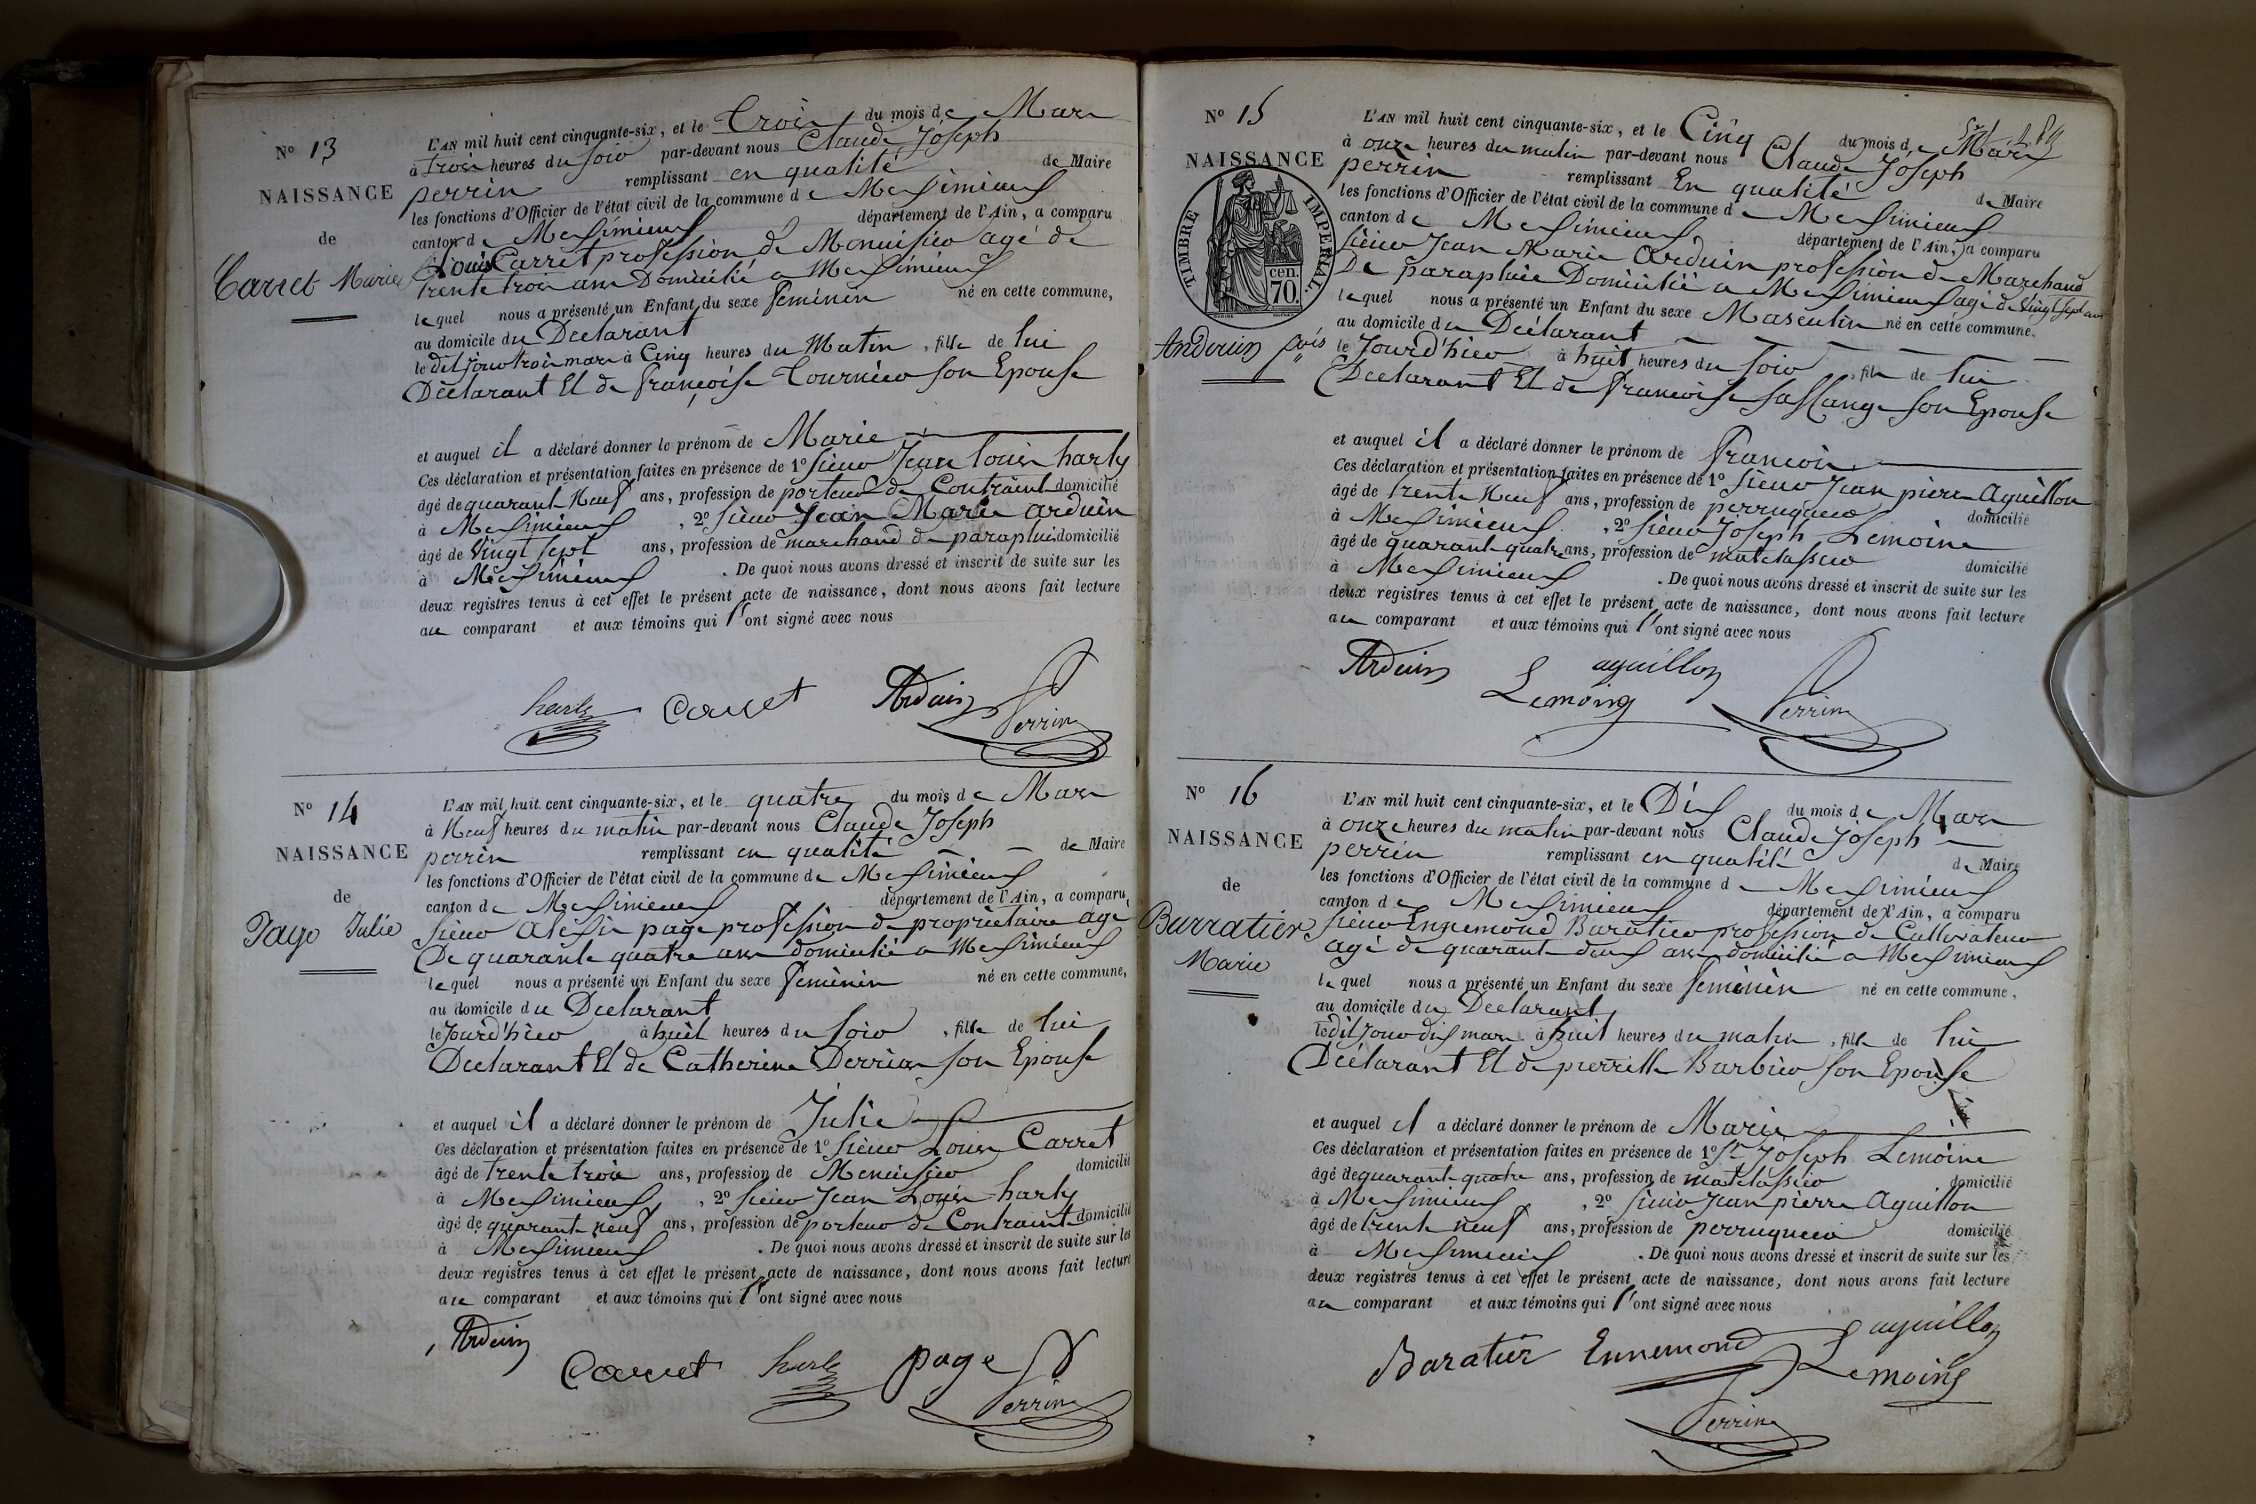 N° 13
NAISSANCE
de
Carret Marie
L'AN mil huit cent cinquante-six, et le trois du mois de Mars
à trois heures du soir par-devant nous Claude Joseph
perrin remplissant en qualité de Maire
les fonctions d'Officier de l'état civil de la commune de Meximieux
canton de Meximieux département de l'Ain, a comparu
Louis Carret profession de Menuisier agé de
trente trois ans Domicilié a Meximieux
lequel nous a présenté un Enfant du sexe feminin né en cette commune,
au domicile du Declarant
le dit jour trois mars à Cinq heures du Matin, fille de lui
Déclarant Et de françoise Tournier son Epouse
et auquel il a déclaré donner le prénom de Marie
Ces déclaration et présentation faites en présence de 1° sieur Jean louis harly
âgé de quarante Neuf ans, profession de porteur de Contrainte domicilié
à Meximieux, 2° sieur Jean Marie arduin
âgé de vingt sept ans, profession de marchand de parapluie domicilié
à Meximieux. De quoi nous avons dressé et inscrit de suite sur les
deux registres tenus à cet effet le présent acte de naissance, dont nous avons fait lecture
au comparant et aux témoins qui l'ont signé avec nous
harly Carret Arduin Perrin
N° 14
NAISSANCE
de
Page Julie
L'AN mil huit cent cinquante-six, et le quatre du mois de Mars
à Neuf heures du matin par-devant nous Claude Joseph
perrin remplissant en qualité de Maire
les fonctions d'Officier de l'état civil de la commune de Meximieux
canton de Meximieux département de l'Ain, a comparu
sieur Alexis page profession de proprietaire agé
De quarante quatre ans domicilié a Meximieux
lequel nous a présenté un Enfant du sexe feminin né en cette commune,
au domicile du Declarant
le jourd'hier à huit heures du soir, fille de lui
Declarant Et de Catherine Derrias son Epouse
et auquel il a déclaré donner le prénom de Julie
Ces déclaration et présentation faites en présence de 1° sieur Louis Carret
âgé de trente trois ans, profession de Menuisier domicilié
à Meximieux, 2° sieur Jean Louis harly
âgé de quarante neuf ans, profession de porteur de Contrainte domicilié
à Meximieux. De quoi nous avons dressé et inscrit de suite sur les
deux registres tenus à cet effet le présent acte de naissance, dont nous avons fait lecture
au comparant et aux témoins qui l'ont signé avec nous
Arduin
Carret harly page Perrin
N° 15
NAISSANCE
TIMBRE IMPERIAL.
cen.
70.
Anderuin fçois
L'AN mil huit cent cinquante-six, et le Cinq du mois de Mars
à onze heures du matin par-devant nous Claude Joseph
perrin remplissant En qualité de Maire
les fonctions d'Officier de l'état civil de la commune de Meximieux
canton de Meximieux département de l'Ain, a comparu
sieur Jean Marie Arduin profession de Marchand
De parapluie Domicilié a Meximieux agé de vingt sept ans
lequel nous a présenté un Enfant du sexe Masculin né en cette commune.
au domicile du Déclarant
le Jourd'hier à huit heures du soir, fils de lui
Déclarant Et de francoise sassange son Epouse
et auquel il a déclaré donner le prénom de francois
Ces déclaration et présentation faites en présence de 1° sieur Jean pierre Aguillon
âgé de trente Neuf ans, profession de perruquier domicilié
à Meximieux, 2° sieur Joseph Lemoine
âgé de quarante quatre ans, profession de matelassier domicilié
à Meximieux. De quoi nous avons dressé et inscrit de suite sur les
deux registres tenus à cet effet le présent acte de naissance, dont nous avons fait lecture
au comparant et aux témoins qui l'ont signé avec nous
Arduin aguillon
Lemoine Perrin
N° 16
NAISSANCE
de
Burratier
Marie
L'AN mil huit cent cinquante-six, et le Dix du mois de Mars
à onze heures du matin par-devant nous Claude Joseph
perrin remplissant en qualité de Maire
les fonctions d'Officier de l'état civil de la commune de Meximieux
canton de Meximieux département de l'Ain, a comparu
sieur Ennemond Baratier profession de Cultivateur
agé de quarante deux ans domicilié a Meximieux
lequel nous a présenté un Enfant du sexe feminin né en cette commune,
au domicile du Declarant
le dit jour dix mars à huit heures du matin, fille de lui
Déclarant Et de pierrette Barbier son Epouse
et auquel il a déclaré donner le prénom de Marie
Ces déclaration et présentation faites en présence de 1° sr Joseph Lemoine
âgé de quarante quatre ans, profession de matelassier domicilié
à Meximieux, 2° sieur Jean pierre Aguillon
âgé de trente neuf ans, profession de perruquier domicilié
à Meximieux. De quoi nous avons dressé et inscrit de suite sur les
deux registres tenus à cet effet le présent acte de naissance, dont nous avons fait lecture
au comparant et aux témoins qui l'ont signé avec nous
Baratier Ennemond aguillon
Lemoine
Perrin